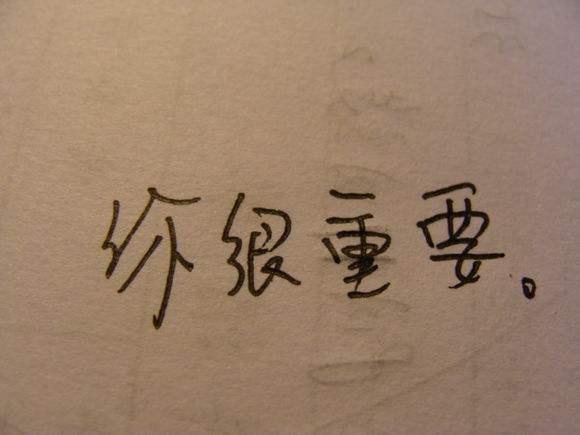 你很重要。